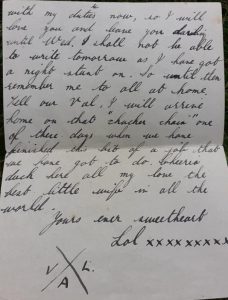 with my duties now, so I will
love you and leave you darling
until Wed. I shall not be able
to write tomorrow as I have got
a night start on. So until then
remember me to all at home.
Tell our Val, I will arrive
home on that "chacher chain" one
of these days when we have
finished this bit of a job that
we have got to do. Cheerio
dack here all my love the
best little wife in all the
world.
Yours ever sweetheart
Lol xxxxxxxxx
V L.
A